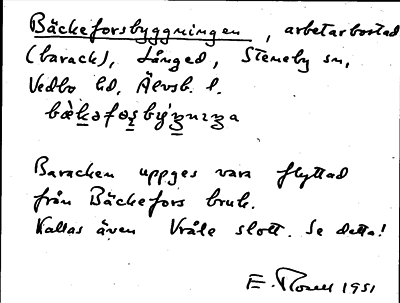 Bäckeforsbyggningen, arbetarbostad
(barack), Långed, Steneby sn,
Vedbo hd, Älvsb. l.
Baracken uppges vara flyttad
från Bäckefors bruk.
Kallas även Vråle slott. Se detta!
E. 1951